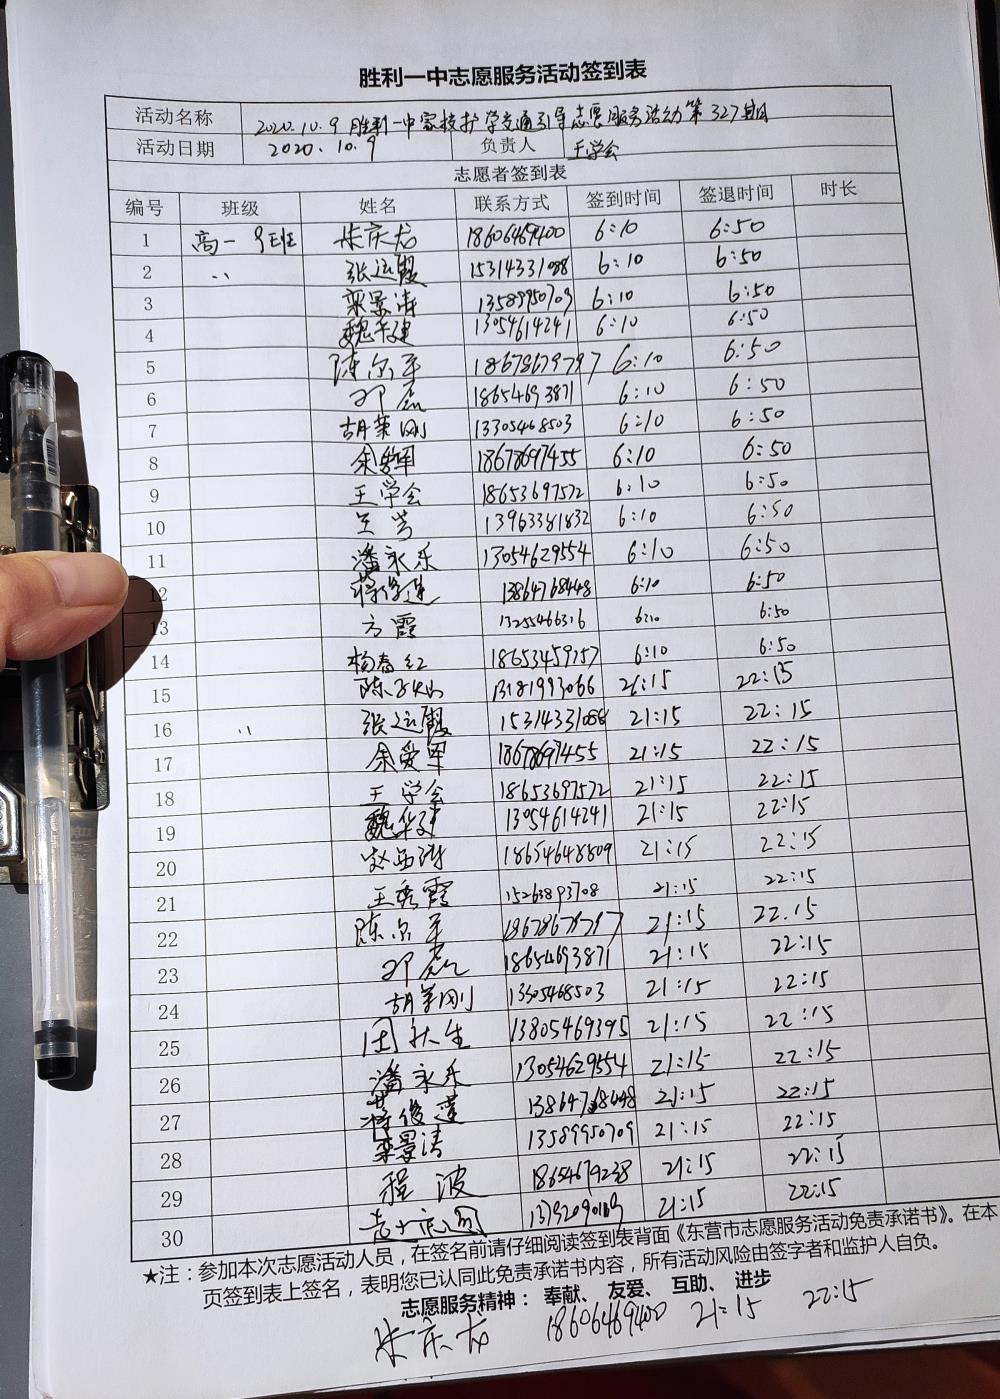 胜利一中志愿服务活动签到表
活动名称 2020.10.9 胜利一中家校护学交通引导志愿服务活动第327期
活动日期 2020.10.9 负责人 王学会
志愿者签到表
编号 班级 姓名 联系方式 签到时间 签退时间 时长
1 高一 9班 朱庆龙 18606469400 6:10 6:50
2 〃 张运霞 15314331088 6:10 6:50
3 栾景涛 13589950709 6:10 6:50
4 魏华建 13054614241 6:10 6:50
5 陈尔平 18678679797 6:10 6:50
6 邓磊 18654693871 6:10 6:50
7 胡荣刚 13305468503 6:10 6:50
8 余爱军 18678697455 6:10 6:50
9 王学会 18653697572 6:10 6:50
10 兰芳 13963381832 6:10 6:50
11 潘永乐 13054629554 6:10 6:50
12 蒋俊莲 13864768448 6:10 6:50
13 方霞 13255466316 6:10 6:50
14 杨春红 18653459757 6:10 6:50
15 陈 13181993066 21:15 22:15
16 〃 张运霞 15314331088 21:15 22:15
17 余爱军 18678697455 21:15 22:15
18 王学会 18653697572 21:15 22:15
19 魏华建 13054614241 21:15 22:15
20 赵 18654648809 21:15 22:15
21 王秀霞 15263893708 21:15 22:15
22 陈尔平 18678679797 21:15 22:15
23 邓磊 18654693871 21:15 22:15
24 胡荣刚 13305468503 21:15 22:15
25 田秋生 13805469395 21:15 22:15
26 潘永乐 13054629554 21:15 22:15
27 蒋俊莲 13864768448 21:15 22:15
28 栾景涛 13589950709 21:15 22:15
29 程波 18654679238 21:15 22:15
30 21:15 22:15
★注：参加本次志愿活动人员，在签名前请仔细阅读签到表背面《东营市志愿服务活动免责承诺书》。在本
页签到表上签名，表明您已认同此免责承诺书内容，所有活动风险由签字者和监护人自负。
志愿服务精神：奉献、友爱、互助、进步
朱庆龙 18606469400 21:15 22:15